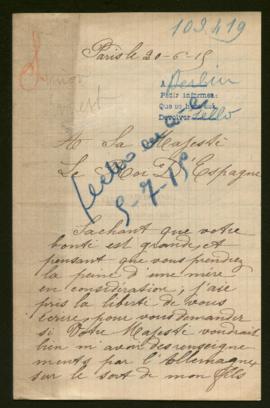 109.419
Paris le 20-6-15
A Berlin
Pedir informes:
Que se
Devolver sello
A Sa Majesté
Le Roi D'Espagne
9-7-15
Sachant que votre
bonté est grande, et
pensant que vous prendrez
la peine d'une mère
en considération; j'aie
pris la liberté de vous
écrire, pour vous demander
si Votre Majesté voudrait
bien m'avoir des renseigne
ments par l'Allemagne
sur le sort de mon fils